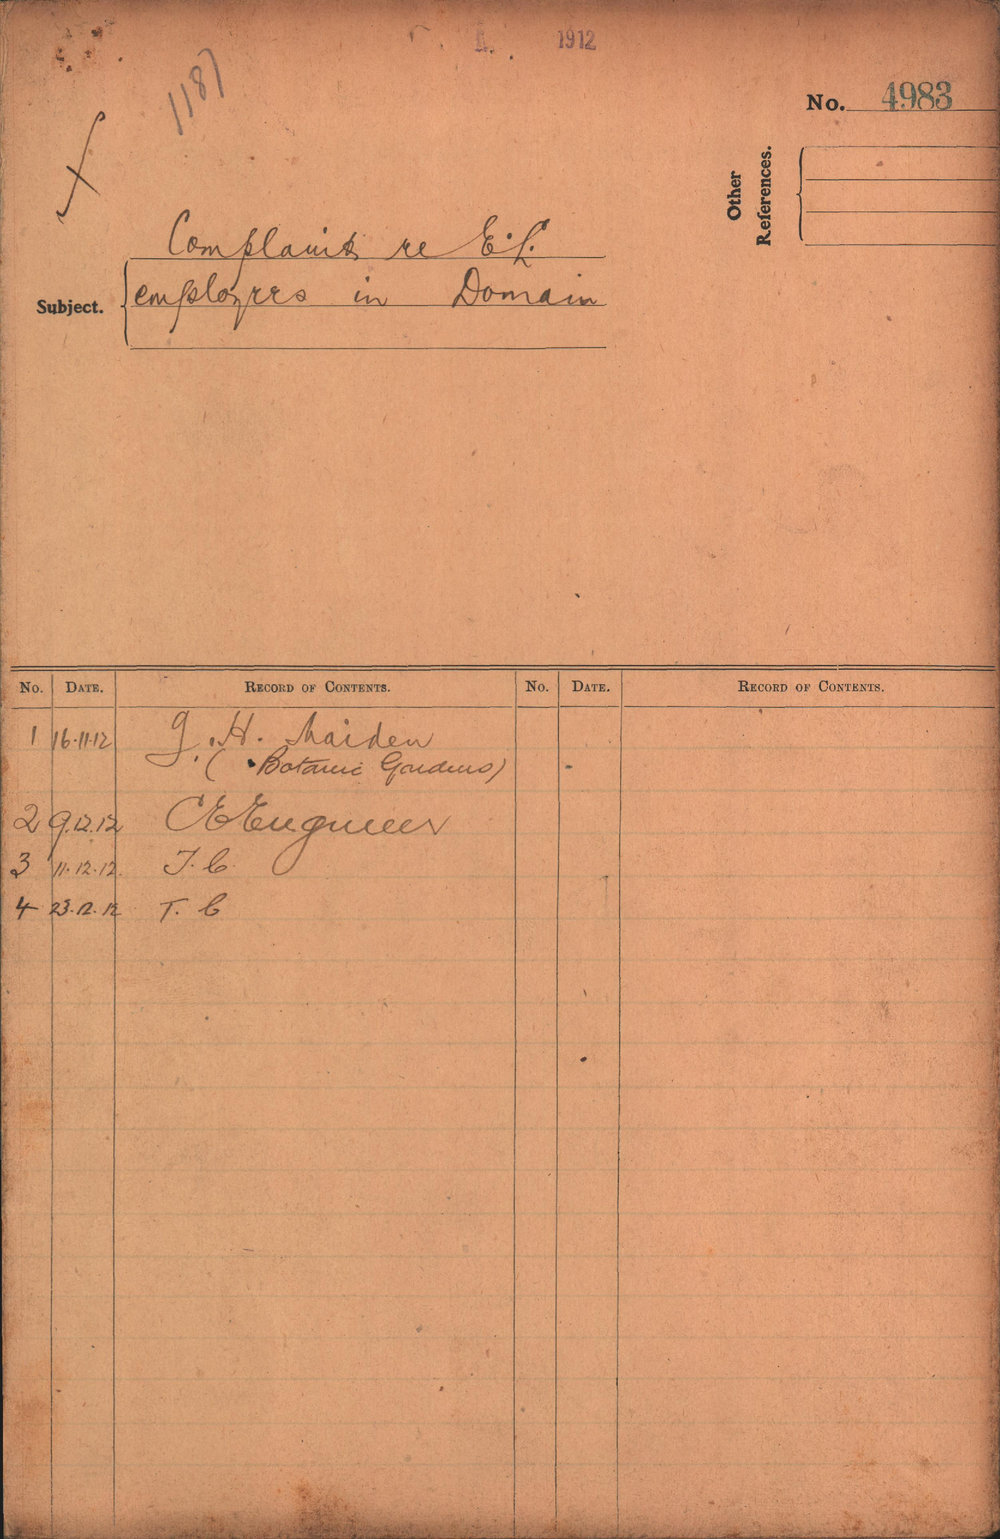 1912
1187
No. 4983
Other
References.
Complaints re E.L.
Subject. employees in Domain
No. DATE. RECORD OF CONTENTS. No. DATE. RECORD OF CONTENTS.
1 16.11.12 J. H. Maiden
(Botanic Gardens)
2 9.12.12 C E Engineer
3 11.12.12. T. C.
4 23.12.12 T. C